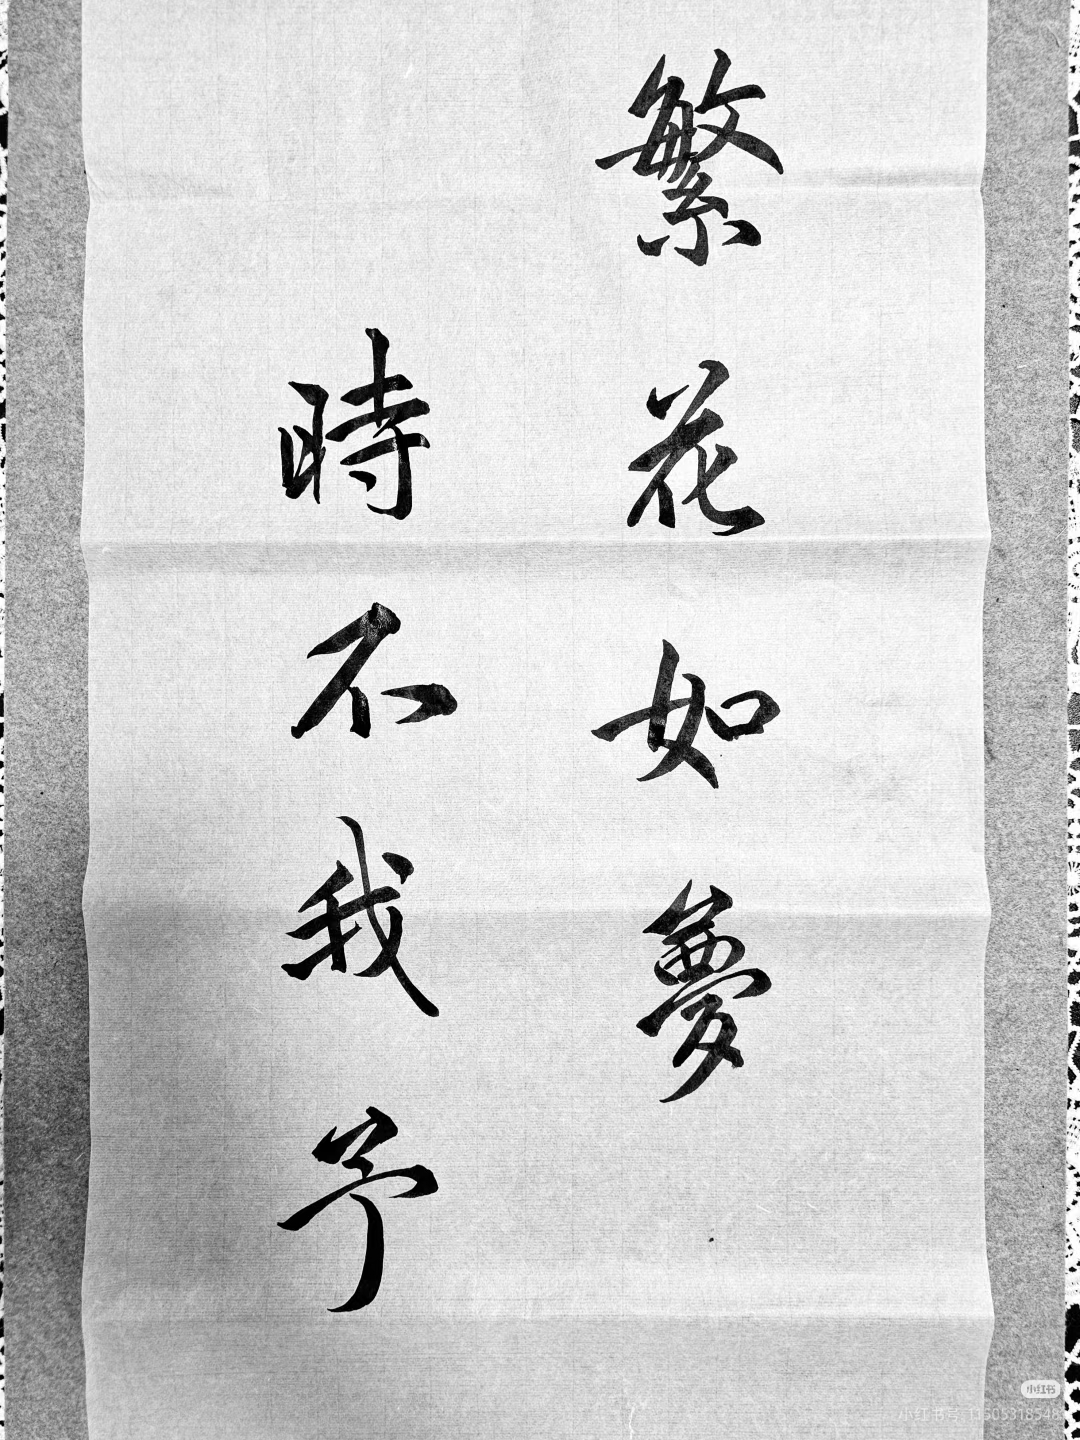 繁花如夢
時不我予
小红书
小红书号:11505318548